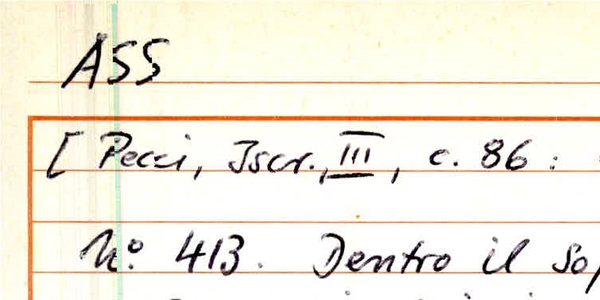 ASS
[ Pecci, Iscr., III, c. 86 :
N.º 413. Dentro il